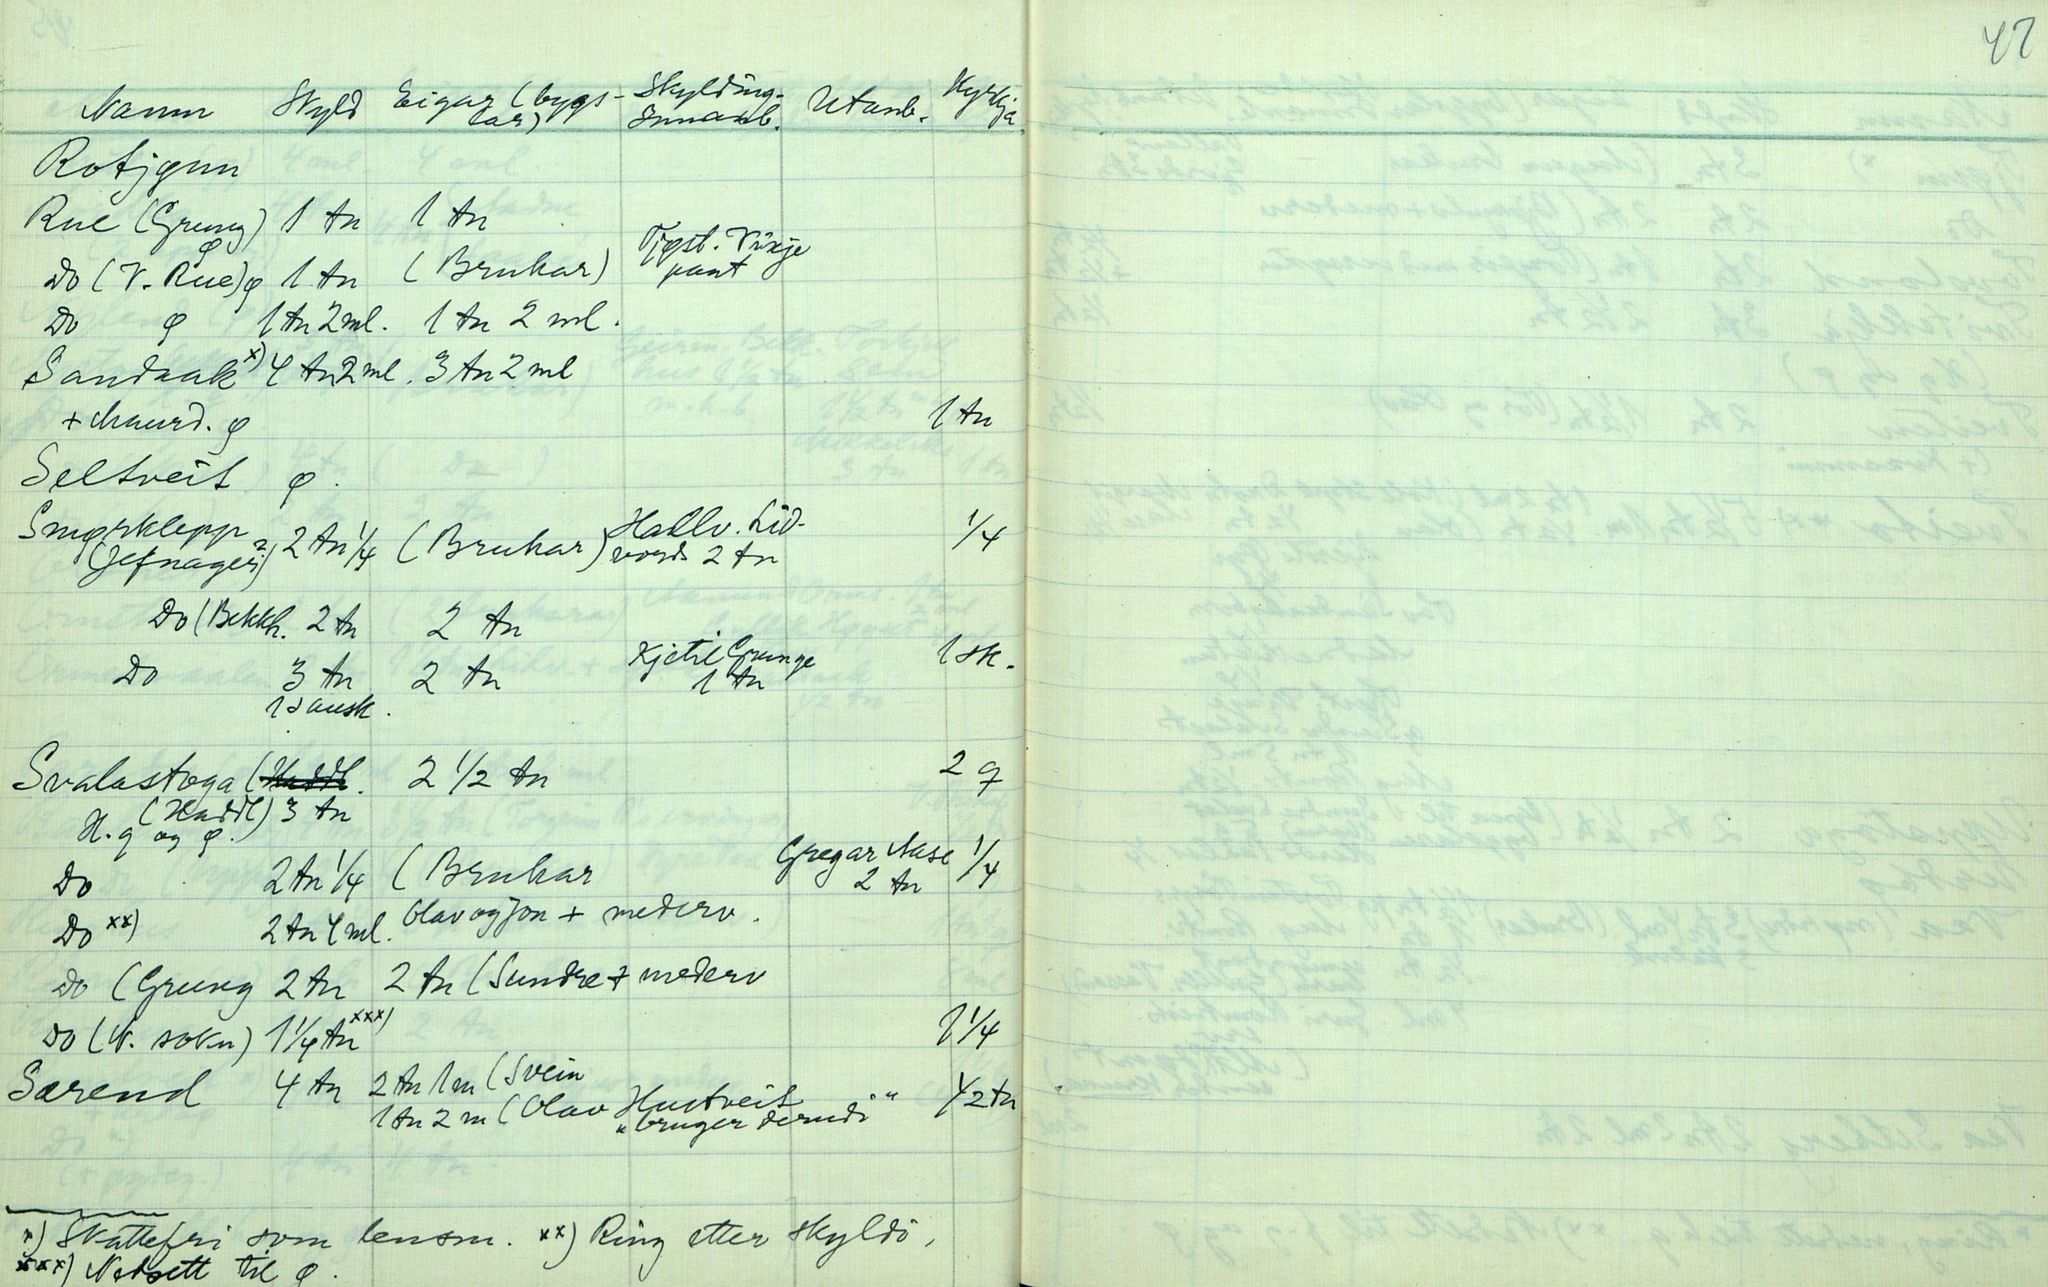 47
Namn Skyld Eigar (bygs- Skylding. Utanb. Kyrkja.
lar) Innanb.
Rotjønn
Rue (Grung) 1 tn 1 tn
ø
Do (V. Rue) ø 1 tn (Brukar) Tjøst. Vinje
pant
Do ø 1 tn 2 ml. 1 tn 2 ml.
Sandaak x) 4 tn 2 ml. 3 tn 2 ml
+ ø 1 tn
Seltveit ø.
Smørklepp 2 tn 1/4 (Brukar) Hallv. Lid- 1/4
(Jefnager?) vords 2 tn
Do (Bekkh. 2 tn 2 tn
Do 3 tn 2 tn Kjetil Grunge 1 sk.
1 dansk. 1 tn
Svalastoga ( 2 1/2 tn 2 q
(Haddl) 3 tn
H. q og ø.
Do 2 tn 1/4 (Brukar Gregar Aase 1/4
2 tn
Do xx) 2 tn 4 ml. Olav og Jon + mederv.
Do (Grung 2 tn 2 tn (Sundre + mederv
Do (V. sokn) 1 1/4 tn xxx) 1 1/4
Særend 4 tn 2 tn 1 m (Svein
1 tn 2 m (Olav Hustveit 1/2 tn
"bruger derudi"
x) Skattefri som lensm. xx) Ring etter skyldi,
xxx) Nedsett til ø.